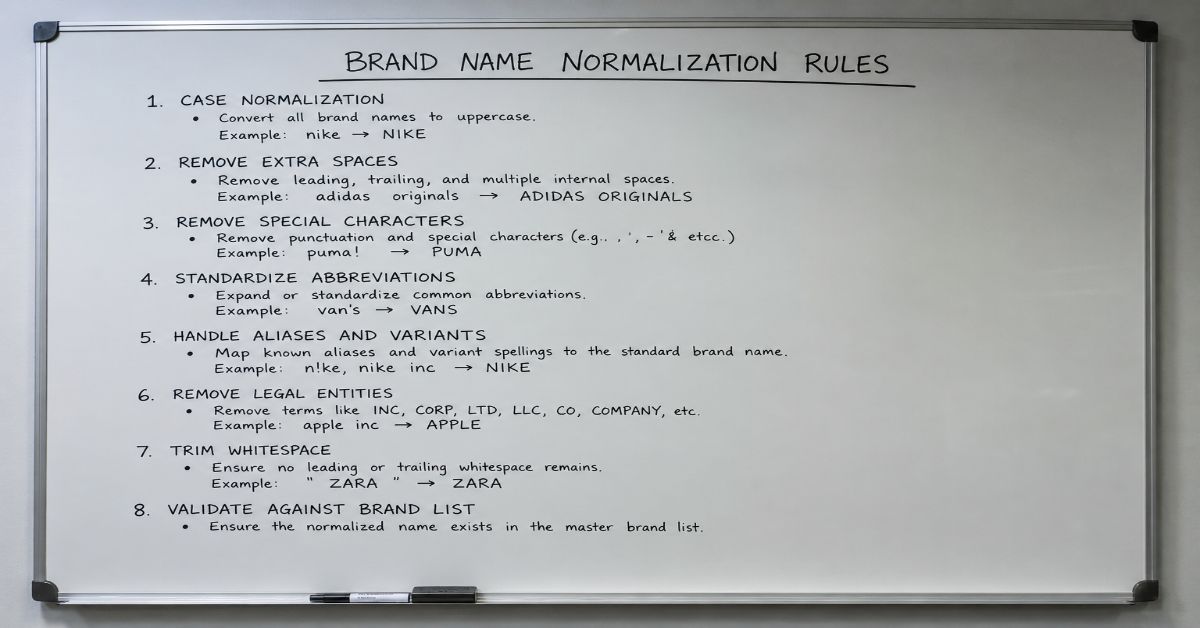 BRAND NAME NORMALIZATION RULES
1. CASE NORMALIZATION
• Convert all brand names to uppercase.
Example: nike → NIKE
2. REMOVE EXTRA SPACES
• Remove leading, trailing, and multiple internal spaces.
Example: adidas originals → ADIDAS ORIGINALS
3. REMOVE SPECIAL CHARACTERS
• Remove punctuation and special characters (e.g.. , ', - '& etcc.)
Example: puma! → PUMA
4. STANDARDIZE ABBREVIATIONS
• Expand or standardize common abbreviations.
Example: van's → VANS
5. HANDLE ALIASES AND VARIANTS
• Map known aliases and variant spellings to the standard brand name.
Example: n!ke, nike inc → NIKE
6. REMOVE LEGAL ENTITIES
• Remove terms like INC, CORP, LTD, LLC, CO, COMPANY, etc.
Example: apple inc → APPLE
7. TRIM WHITESPACE
• Ensure no leading or trailing whitespace remains.
Example: " ZARA " → ZARA
8. VALIDATE AGAINST BRAND LIST
• Ensure the normalized name exists in the master brand list.